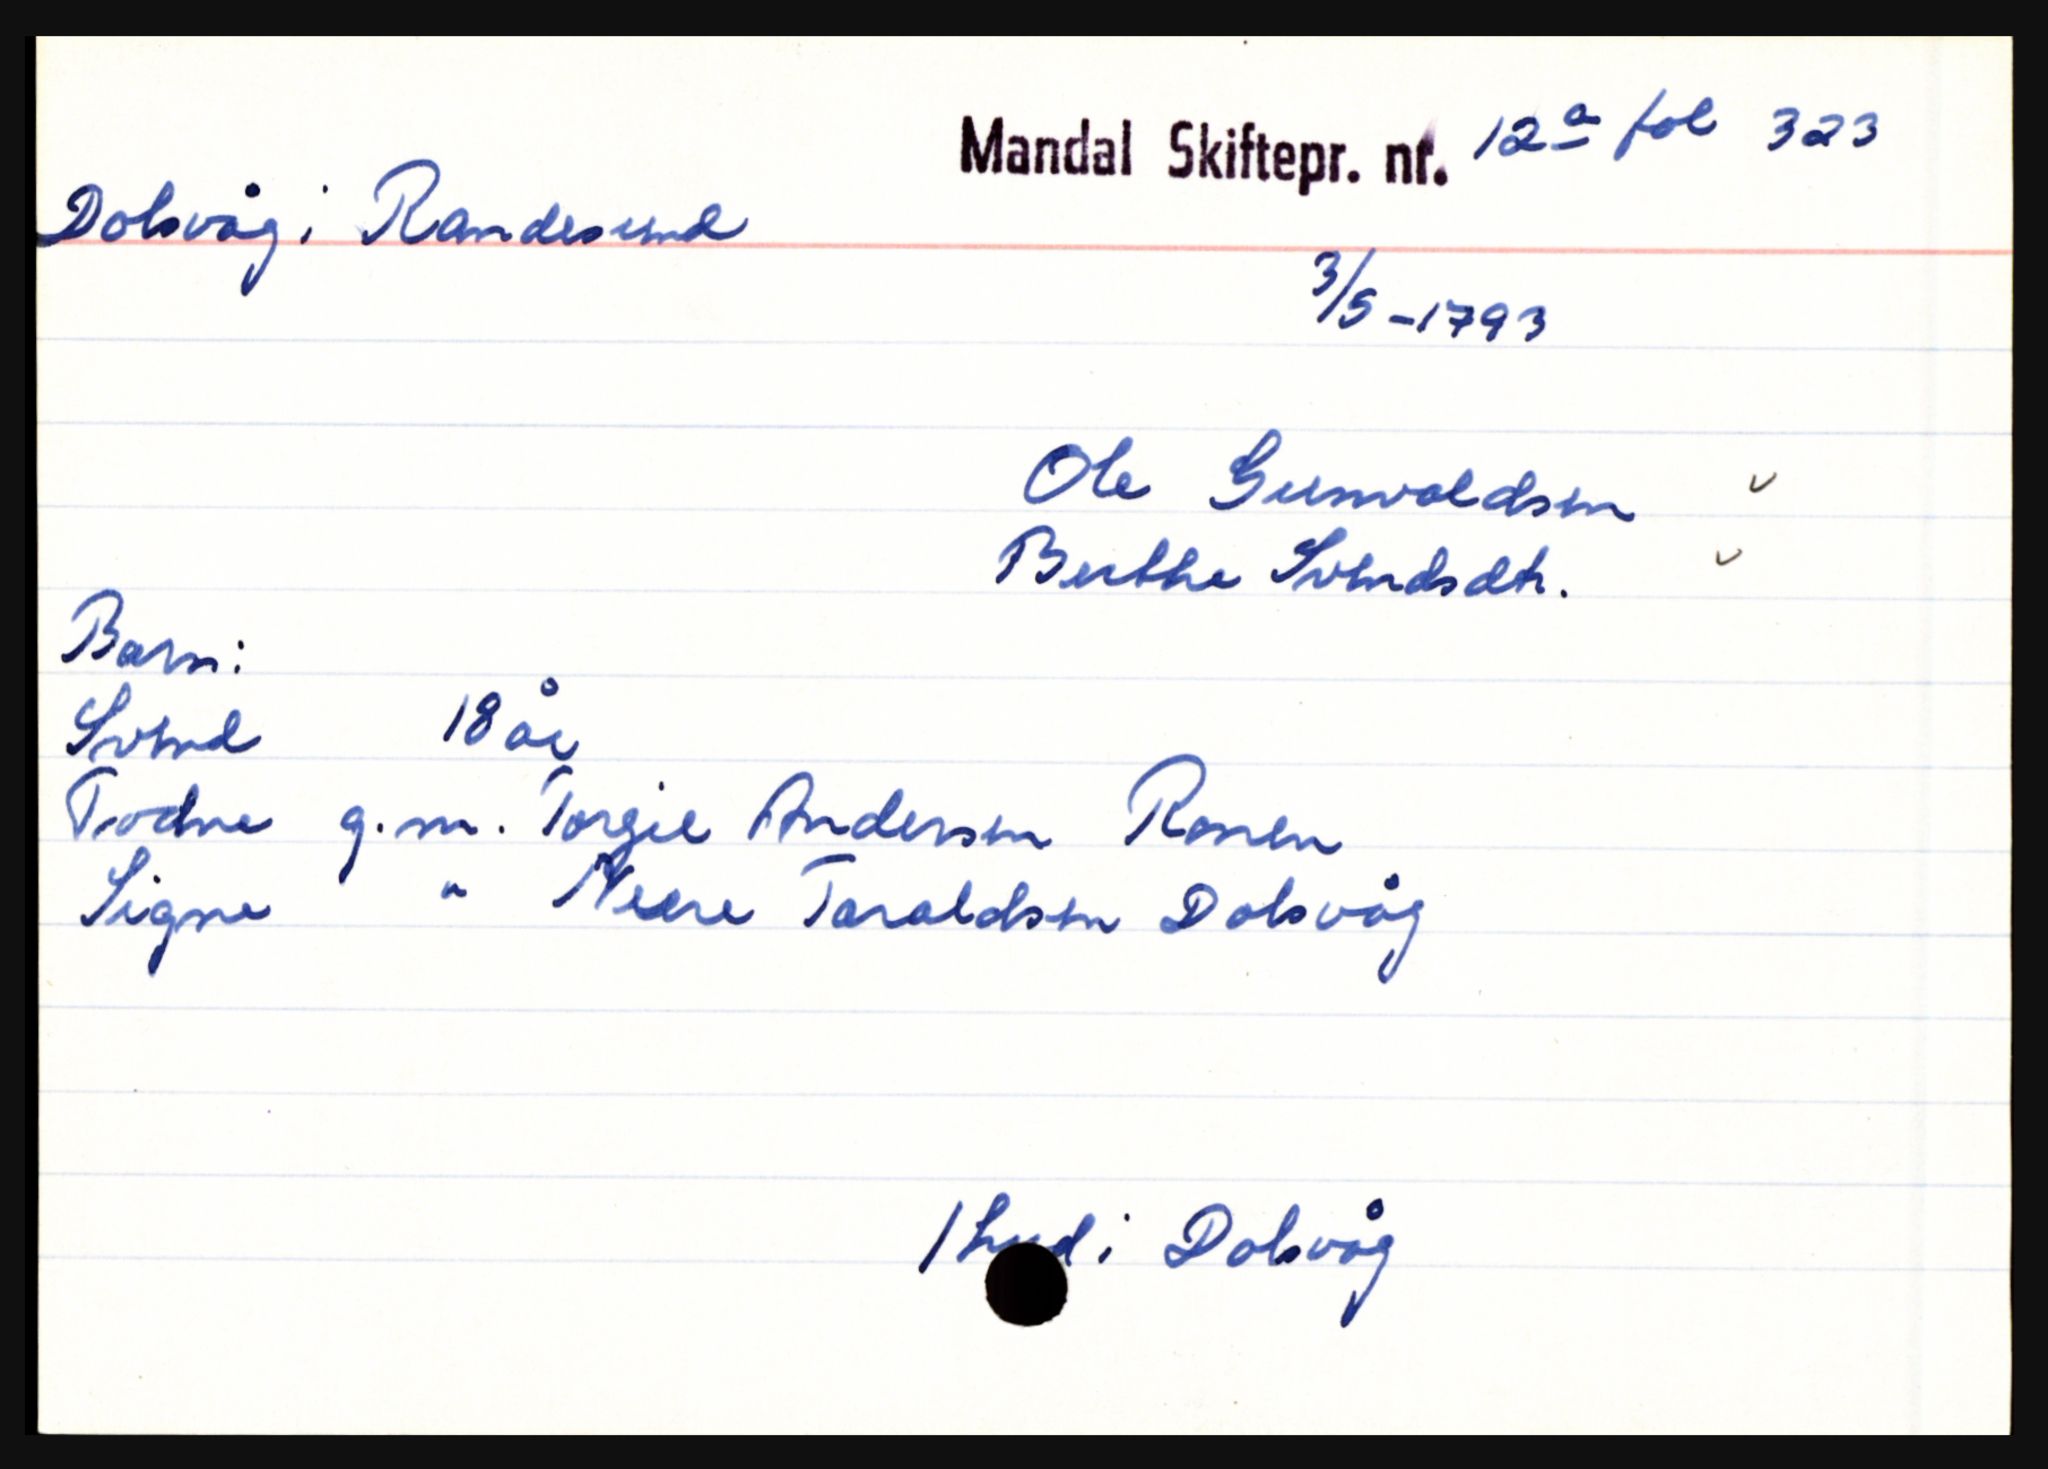 Mandal Skiftepr. nr. 12a fol 323
Dolsvåg i Randesund
3/5-1793
Ole Gunvaldsen v
Berthe Svendsdtr. v
Barn:
Svend 18 år
Todne g.m. Torgie Andersen Ronen
Signe " Neere Taraldsen Dolsvåg
1 hud i Dolsvåg